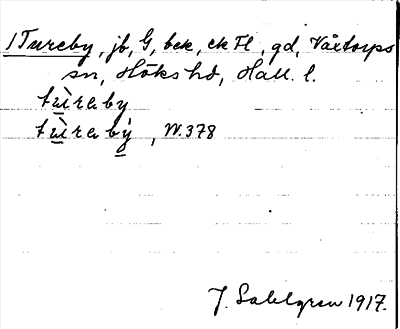 1 Tureby, jb, G, bek, ek Fl, gd, Våxtorps
sn, Höks hd, Hall. l.
tùraby
tùrabỳ̱, W. 378
J. Sahlgren 1917.